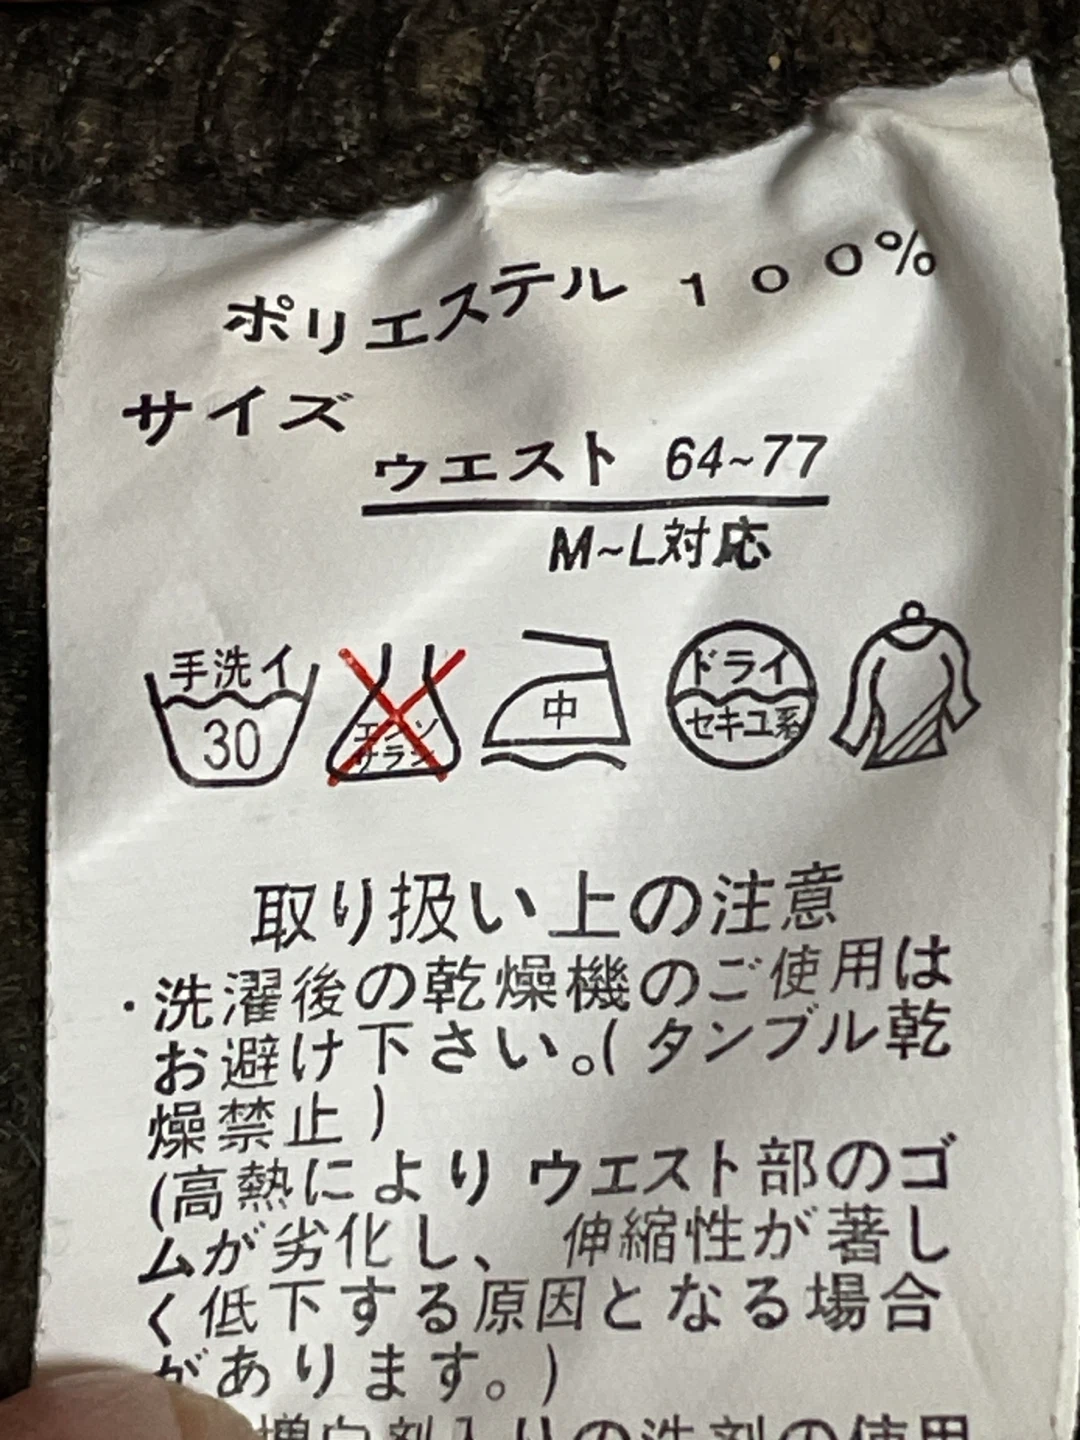 ポリエステル 100%
サイズ
ウエスト 64~77
M~L対応
手洗イ
30
エンソ
サラシ
中
ドライ
セキユ系
取り扱い上の注意
・洗濯後の乾燥機のご使用は
お避け下さい。(タンブル乾
燥禁止)
(高熱によりウエスト部のゴ
ムが劣化し、伸縮性が著し
く低下する原因となる場合
があります。)
増白剤入りの洗剤の使用